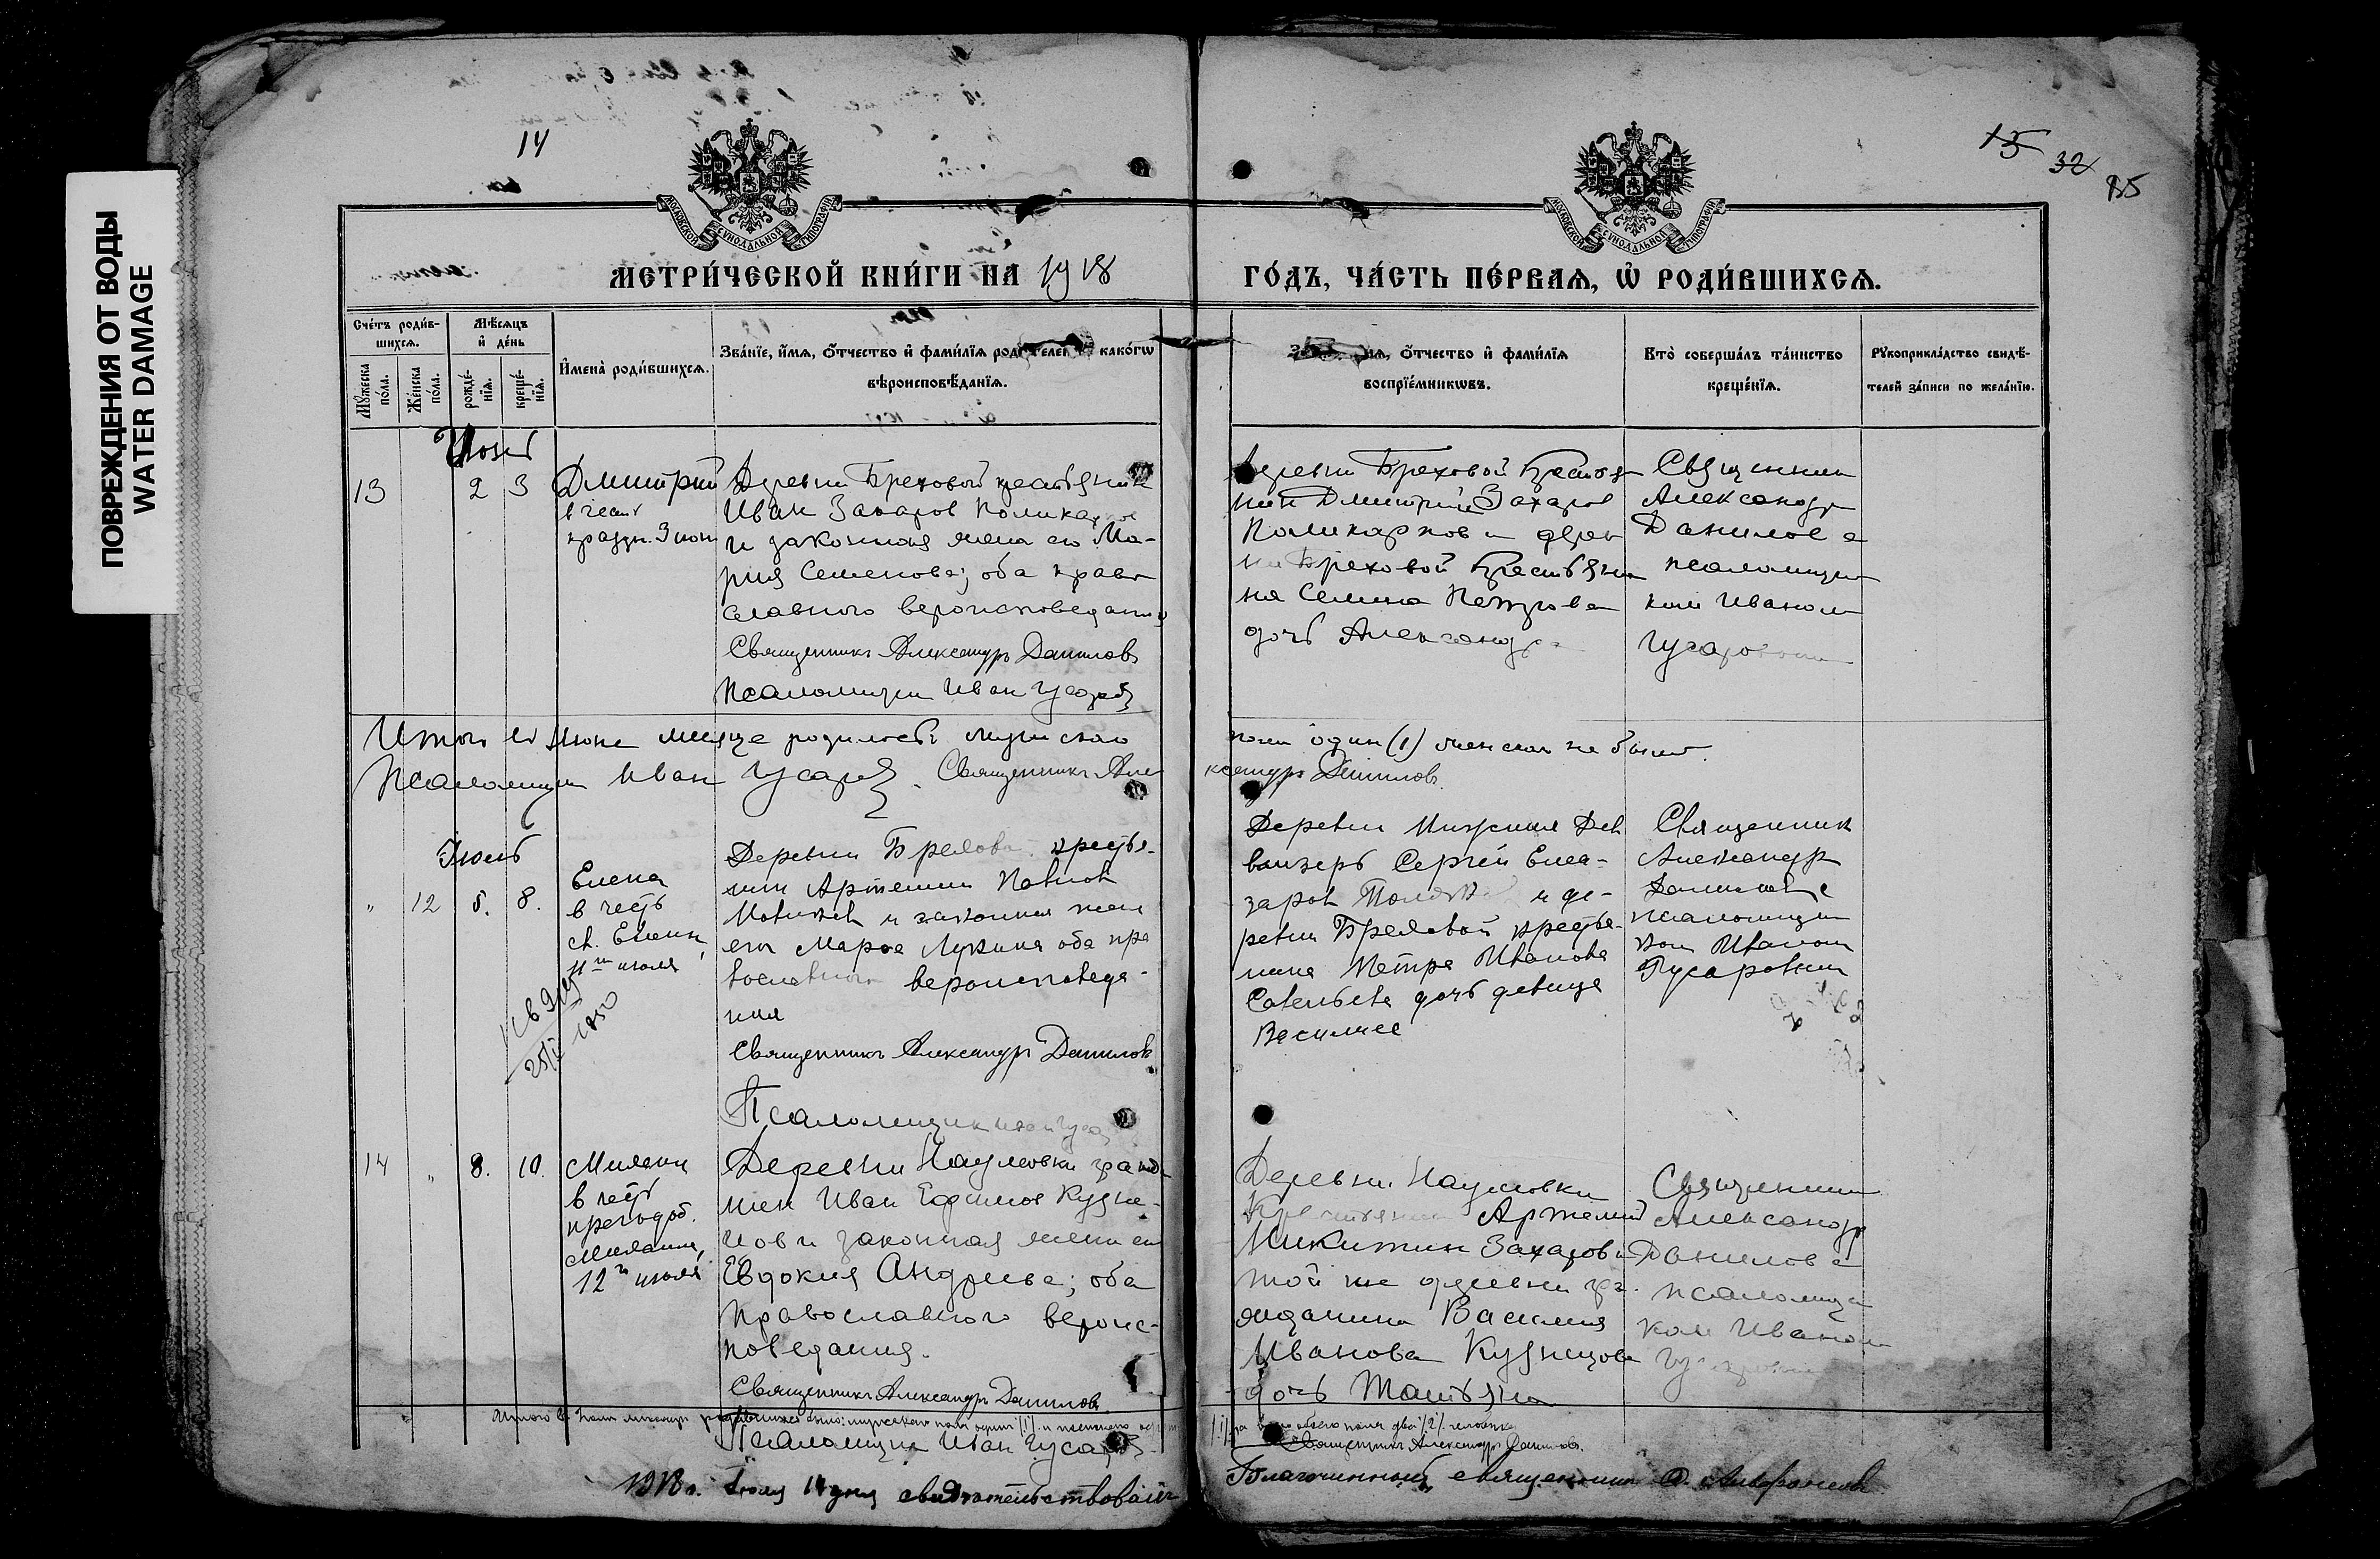 ПОВРЕЖДЕНИЯ ОТ ВОДЫ
WATER DAMAGE
14
15 32 85
МОСКОВСКОЙ СУНОДАЛЬНОЙ ТИПОГРАФІИ
МОСКОВСКОЙ СУНОДАЛЬНОЙ ТИПОГРАФІИ
МЕТРИ́ЧЕСКОЙ КНИ́ГИ НА 1918
ГО́ДЪ, ЧА́СТЬ ПЕ́РВАѦ, Ѡ҆ РОДИ́ВШИХСѦ.
Сче́тъ роди́в-
шихсѧ.
Мѣ́сѧцъ
и҆ де́нь
Мꙋ́жеска
по́ла.
Же́нска
по́ла.
рожде́-
нїѧ.
креще́-
нїѧ.
И҆мена̀ роди́вшихсѧ.
Зва́нїе, и҆́мѧ, ѻ҆́тчество и҆ фами́лїѧ како́гѡ
вѣроисповѣ́данїѧ.
ѻ҆́тчество и҆ фами́лїѧ
воспрїе́мникѡвъ.
Кто̀ соверша́лъ та́инство
креще́нїѧ.
Рꙋкоприкла́дство свидѣ́-
телей за́писи по жела́нїю.
Июнь
13 2 3 Дмитрий
в честь
праздн. 3 июн
Деревни Бреховой крестьянин
Иван Захаров Поликарпов
и законная жена его Ма-
рия Семенова; оба право
славного вероисповедания
Священникъ Александръ Даниловъ
Псаломщик Иван Гусаров
Деревни Бреховой Крестья
нин Дмитрий Захаров
Поликарпов и дерев
ни Бреховой Крестьяни
на Семена Петрова
дочь Александра
Священник
Александр
Данилов с
псаломщи
ком Иваном
Гусаровым
Итого в Июне месяце родилось мужского
пола один (1) женского не было.
Псаломщик Иван Гусаров. Священникъ Але
ксандръ Даниловъ.
Июль
" 12 5. 8.
Елена
в честь
св. Елены,
11го июля
Деревни Бреховой крестья-
нин Артемий Павлов
и законная жена
его Марфа Лукина оба пра
вославного вероисповеда-
ния
Священникъ Александръ Даниловъ
Псаломщик Иван Гусаров
Деревни
Сергей Елеа-
заров и де-
ревни Бреховой крестья-
нина Петра Иванова
Савельева дочь девица
Василиса
Священник
Александр
Данилов с
псаломщи
ком Иваном
Гусаровым
14 " 8. 10.
в честь
преподоб.
12го июля
Деревни Наумовки гражда
нин Иван Ефимов Кузне-
цов и законная жена его
Евдокия Андреева; оба
православного вероис-
поведания.
Священникъ Александръ Даниловъ.
Псаломщик Иван Гусаров
Деревни Наумовки
Крестьянин Артемий
Никитин Захаров и
той же деревни гра
жданина Василия
Иванова Кузнецова
дочь Татьяна
Священник
Александр
Данилов с
псаломщи
ком Иваном
Гусаровым
Итого в Июле месяце родившихся было: мужского пола один /1/ и женского
/1/, а всего обоего пола два /2/ человека
Священникъ Александръ Даниловъ.
1918 г. Июля 14 дня свидетельствовалъ
Благочинный священник